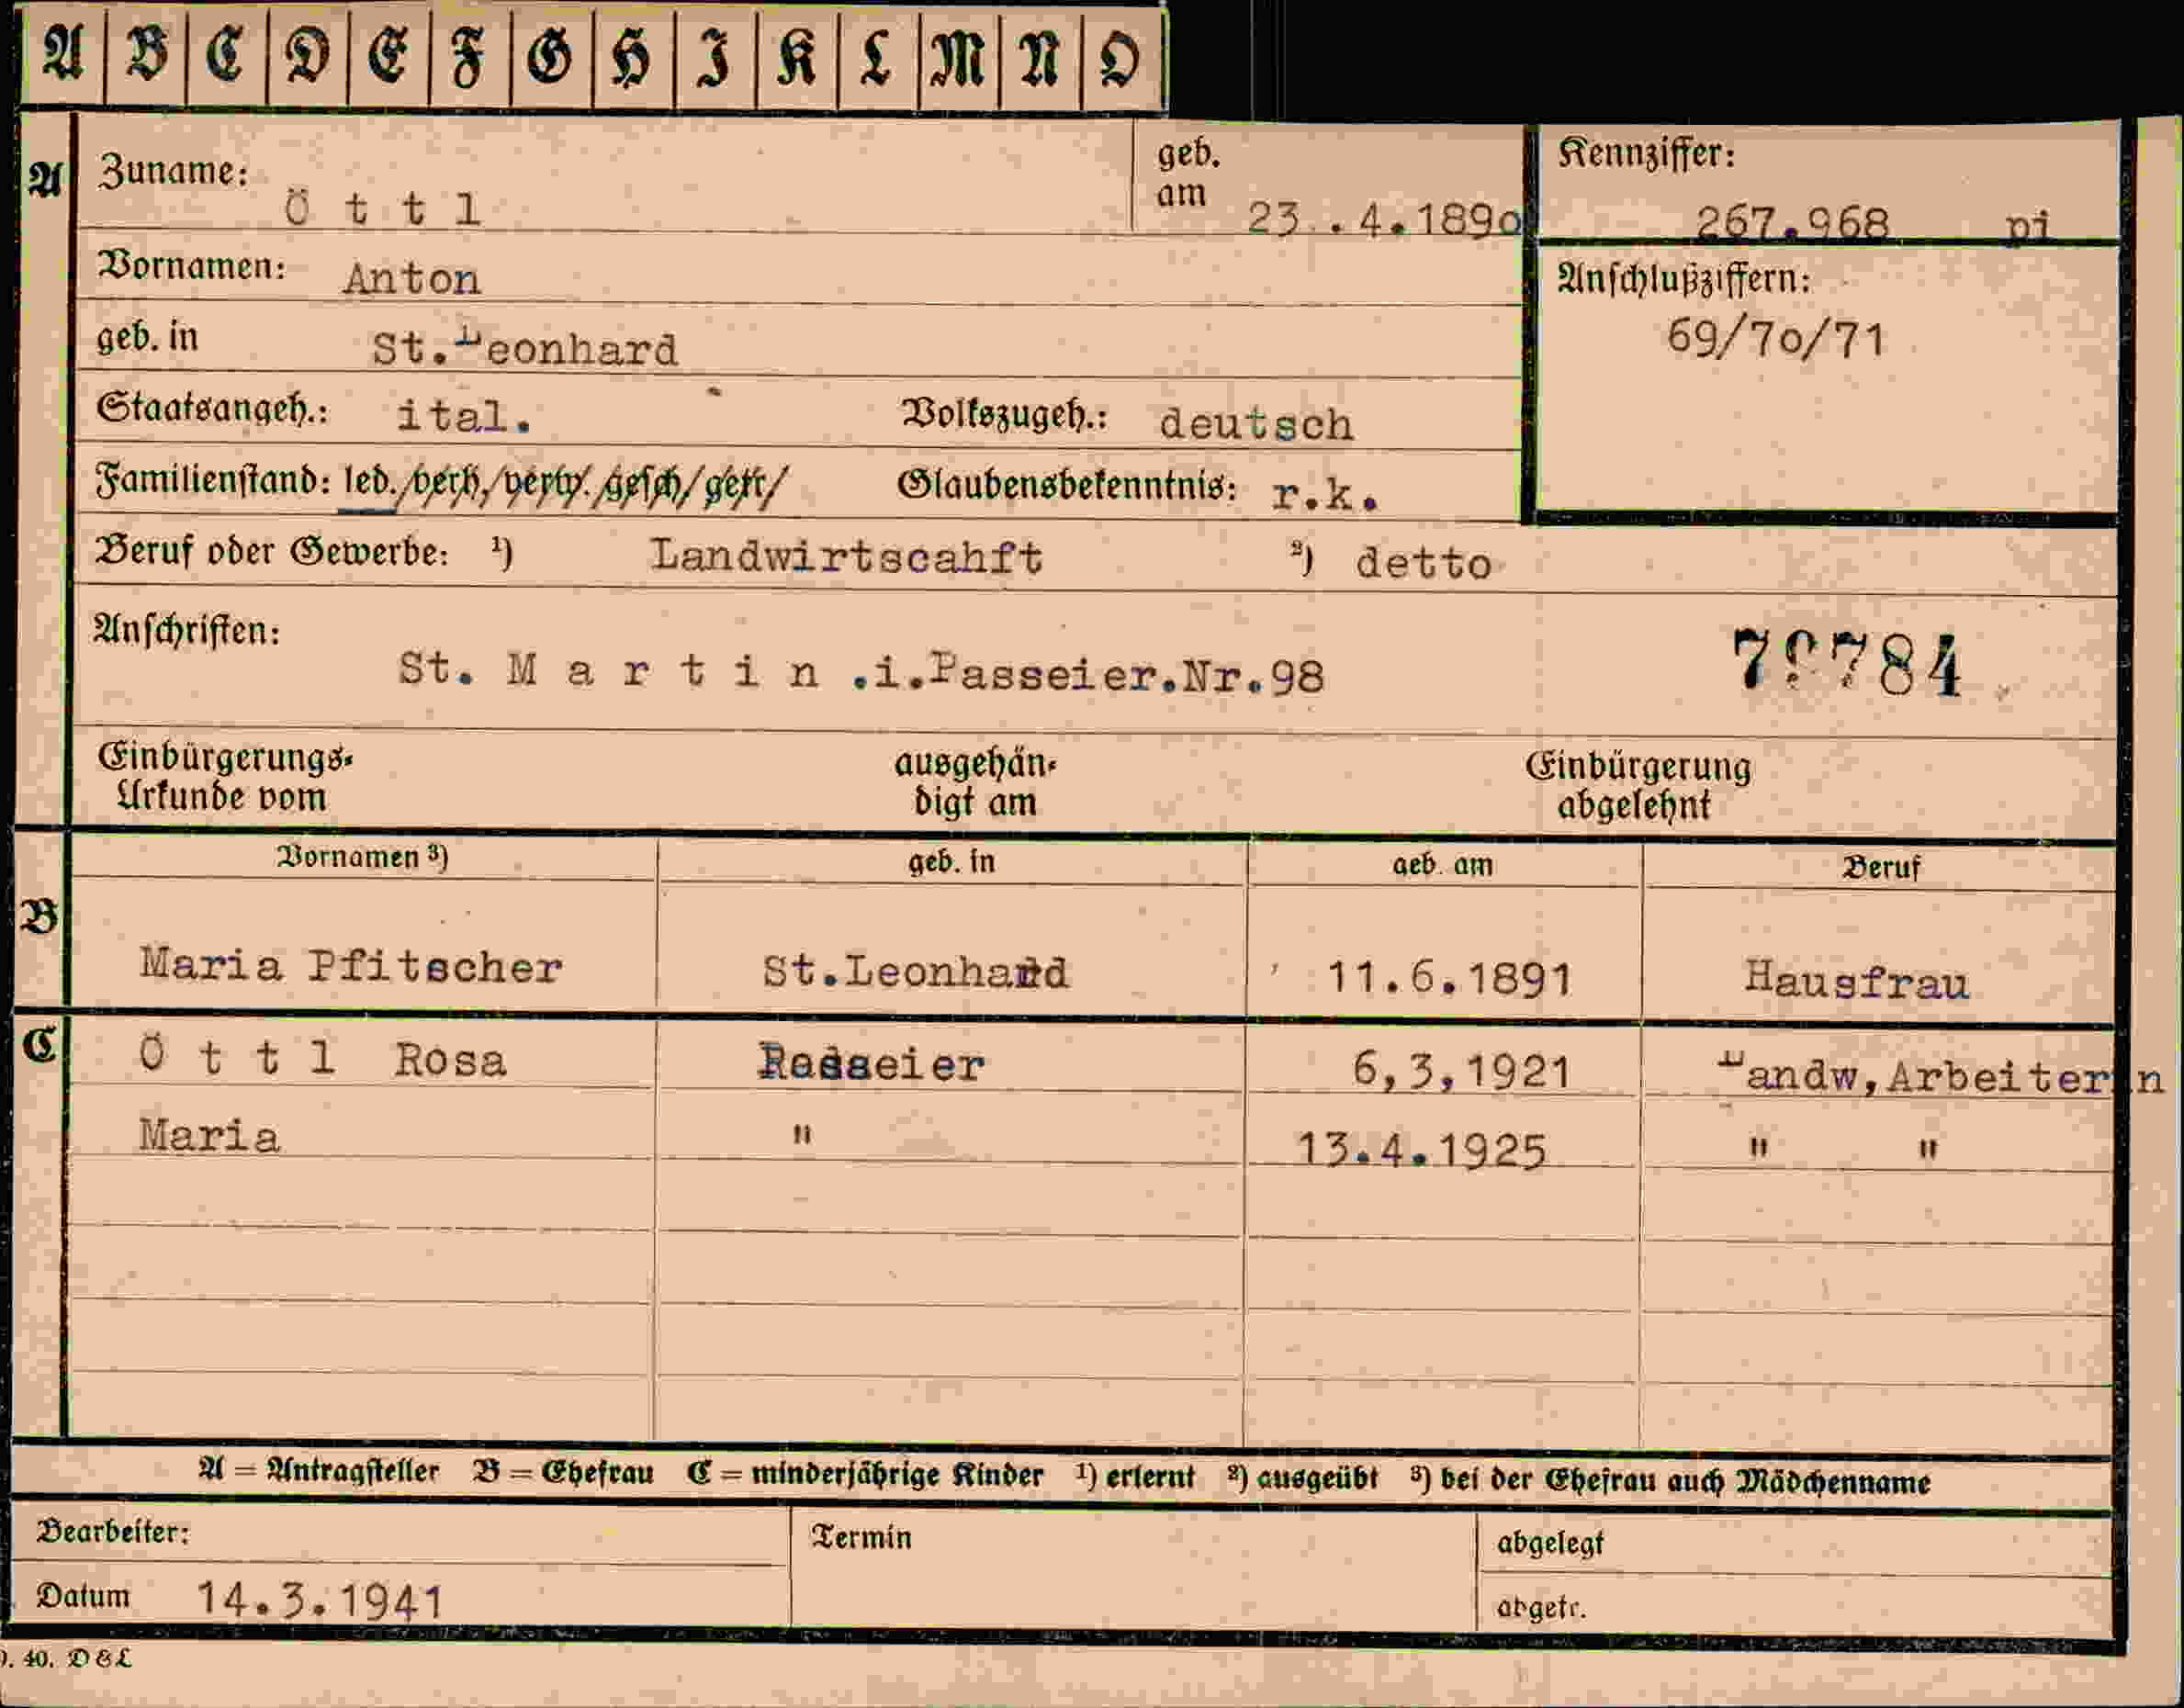 A B C D E F G H I K L M N O
A
Zuname: Öttl
geb. am 23.4.1890
Kennziffer: 267.968 pi
Vornamen: Anton
Anschlußziffern:
69/70/71
geb. in St.Leonhard
Staatsangeh.: ital. Volkszugeh.: deutsch
Familienstand: led./verh./verw./gesch/getr/ Glaubensbekenntnis: r.k.
Beruf oder Gewerbe: ¹) Landwirtscahft ²) detto
Anschriften:
St. Martin .i.Passeier.Nr.98
Einbürgerungs-Urkunde vom
ausgehändigt am
Einbürgerung abgelehnt
Vornamen ³) geb. in geb. am Beruf
B
Maria Pfitscher St.Leonhard 11.6.1891 Hausfrau
C
Öttl Rosa Passeier 6,3,1921 Landw,Arbeiterin
Maria " 13.4.1925 " "
A = Antragsteller B = Ehefrau C = minderjährige Kinder ¹) erlernt ²) ausgeübt ³) bei der Ehefrau auch Mädchenname
Bearbeiter: Termin abgelegt
Datum 14.3.1941 abgetr.
40. D & L